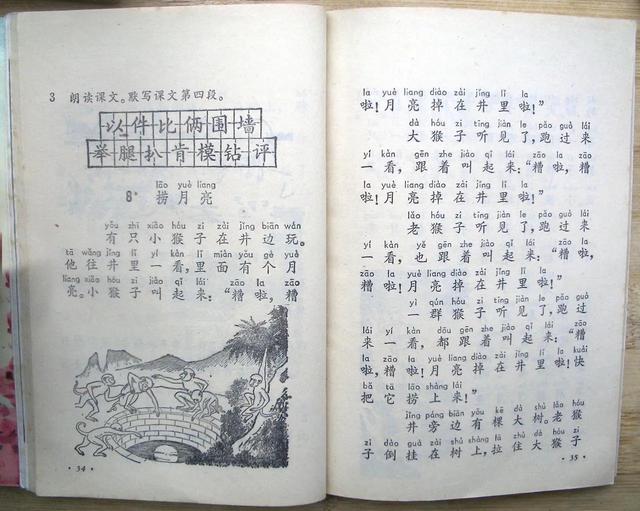 3 朗读课文。默写课文第四段。
以件比俩围墙
举腿扒肯模钻评
lāo yuè liang
8 捞月亮
yǒu zhī xiǎo hóu zi zài jǐng biān wán
有只小猴子在井边玩。
tā wǎng jǐng lǐ yí kàn lǐ miàn yǒu gè yuè
他往井里一看，里面有个月
liang xiǎo hóu zi jiào qǐ lái zāo la zāo
亮。小猴子叫起来：“糟啦，糟
·34·
la yuè liang diào zài jǐng lǐ la
啦！月亮掉在井里啦！”
dà hóu zi tīng jiàn le pǎo guò lái
大猴子听见了，跑过来
yí kàn gēn zhe jiào qǐ lái zāo la zāo
一看，跟着叫起来：“糟啦，糟
la yuè liang diào zài jǐng lǐ la
啦！月亮掉在井里啦！”
lǎo hóu zi tīng jiàn le pǎo guò lái
老猴子听见了，跑过来
yí kàn yě gēn zhe jiào qǐ lái zāo la
一看，也跟着叫起来：“糟啦，
zāo la yuè liang diào zài jǐng lǐ la
糟啦！月亮掉在井里啦！”
yì qún hóu zi tīng jiàn le pǎo guò
一群猴子听见了，跑过
lái yí kàn dōu gēn zhe jiào qǐ lái zāo
来一看，都跟着叫起来：“糟
la zāo la yuè liang diào zài jǐng lǐ la kuài
啦，糟啦！月亮掉在井里啦！快
bǎ tā lāo shàng lái
把它捞上来！”
jǐng páng biān yǒu kē dà shù lǎo hóu
井旁边有棵大树。老猴
zi dào guà zài shù shàng lā zhù dà hóu zi
子倒挂在树上，拉住大猴子
·35·